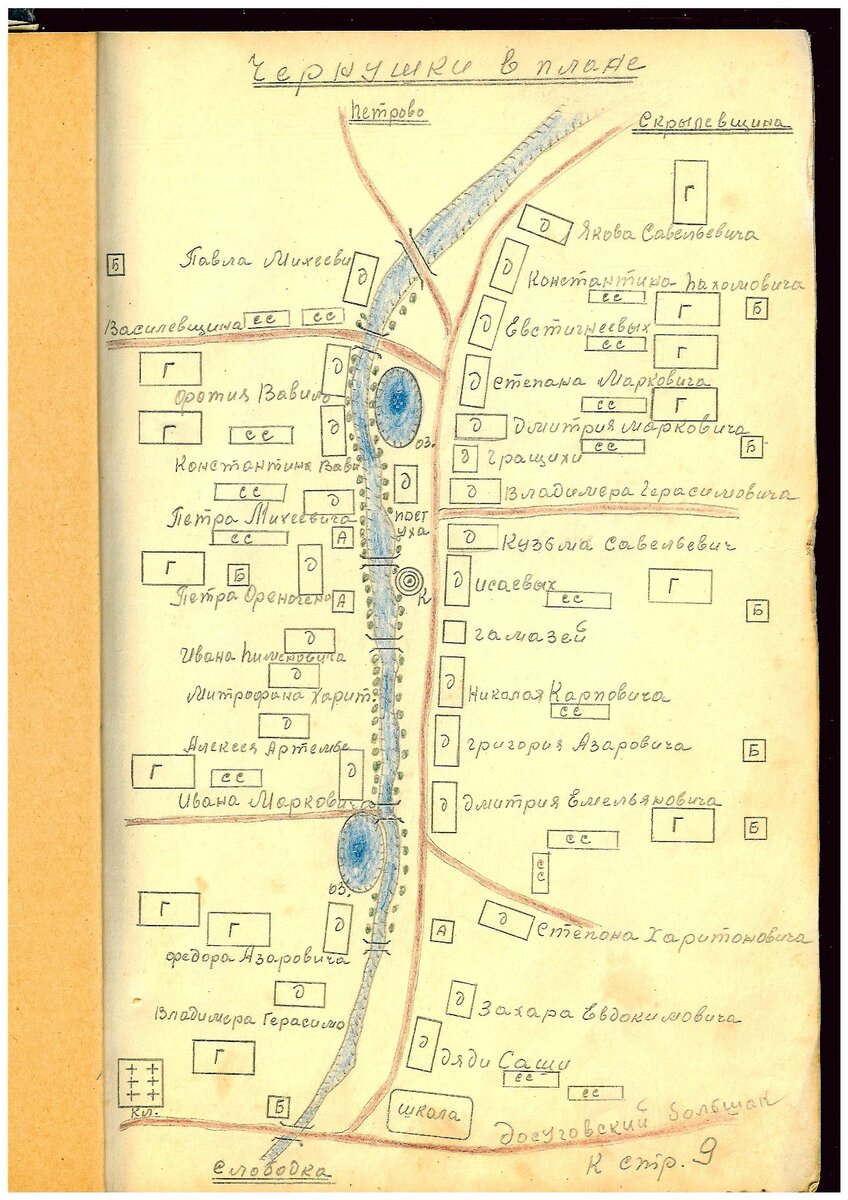 Чернушки в плане
Петрово
Скрылевщина
Г
Д
Якова Савельевича
Павла Михееви
Б
Д
Д
Константина Пахомовича
сс
Г
Б
Василевщина
сс
сс
Д
Евстигнеевых
сс
Г
Г
Д
Д
Степана Марковича
сс
Г
Фротия Вавило
Г
сс
Д
оз.
Д
Дмитрия Марковича
сс
Б
Д
Гращихи
Константина Вави
Д
пост
уха
сс
Д
Д
Владимера Герасимовича
Петра Михеевича
сс
А
Д
Кузьма Савельевич
Г
Б
Д
К
Д
Исаевых
сс
Г
Б
Петра Ореногено
А
Д
гамазей
Ивана Пименовича
Д
Митрофана Харит.
Д
Николая Карповича
сс
Д
Алексея Артемье
Д
Григория Азаровича
Б
Г
сс
Д
Ивана Марковича
Д
Дмитрия Емельяновича
Г
Б
сс
сс
оз.
Г
Г
Д
А
Д
Степона Харитоновича
Федора Азаровича
Д
Владимера Герасимо
Д
Захара Евдокимовича
Г
Д
Дяди Саши
сс
сс
кл.
Б
школа
Досуговский большак
Слободка
К стр. 9